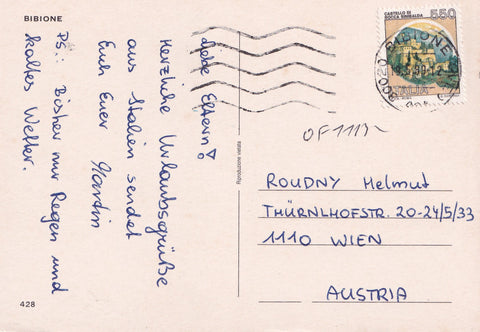 BIBIONE
Liebe Eltern!
Herzliche Urlaubsgrüße
aus Italien sendet
Euch Euer Martin
PS.: Bisher nur Regen und
kaltes Wetter.
428
Riproduzione vietata
CASTELLO DI
ROCCA SINIBALDA
550
ITALIA
30020 BIBIONE
OF 1113-
ROUDNY Helmut
THÜRNLHOFSTR. 20-24/5/33
1110 WIEN
AUSTRIA